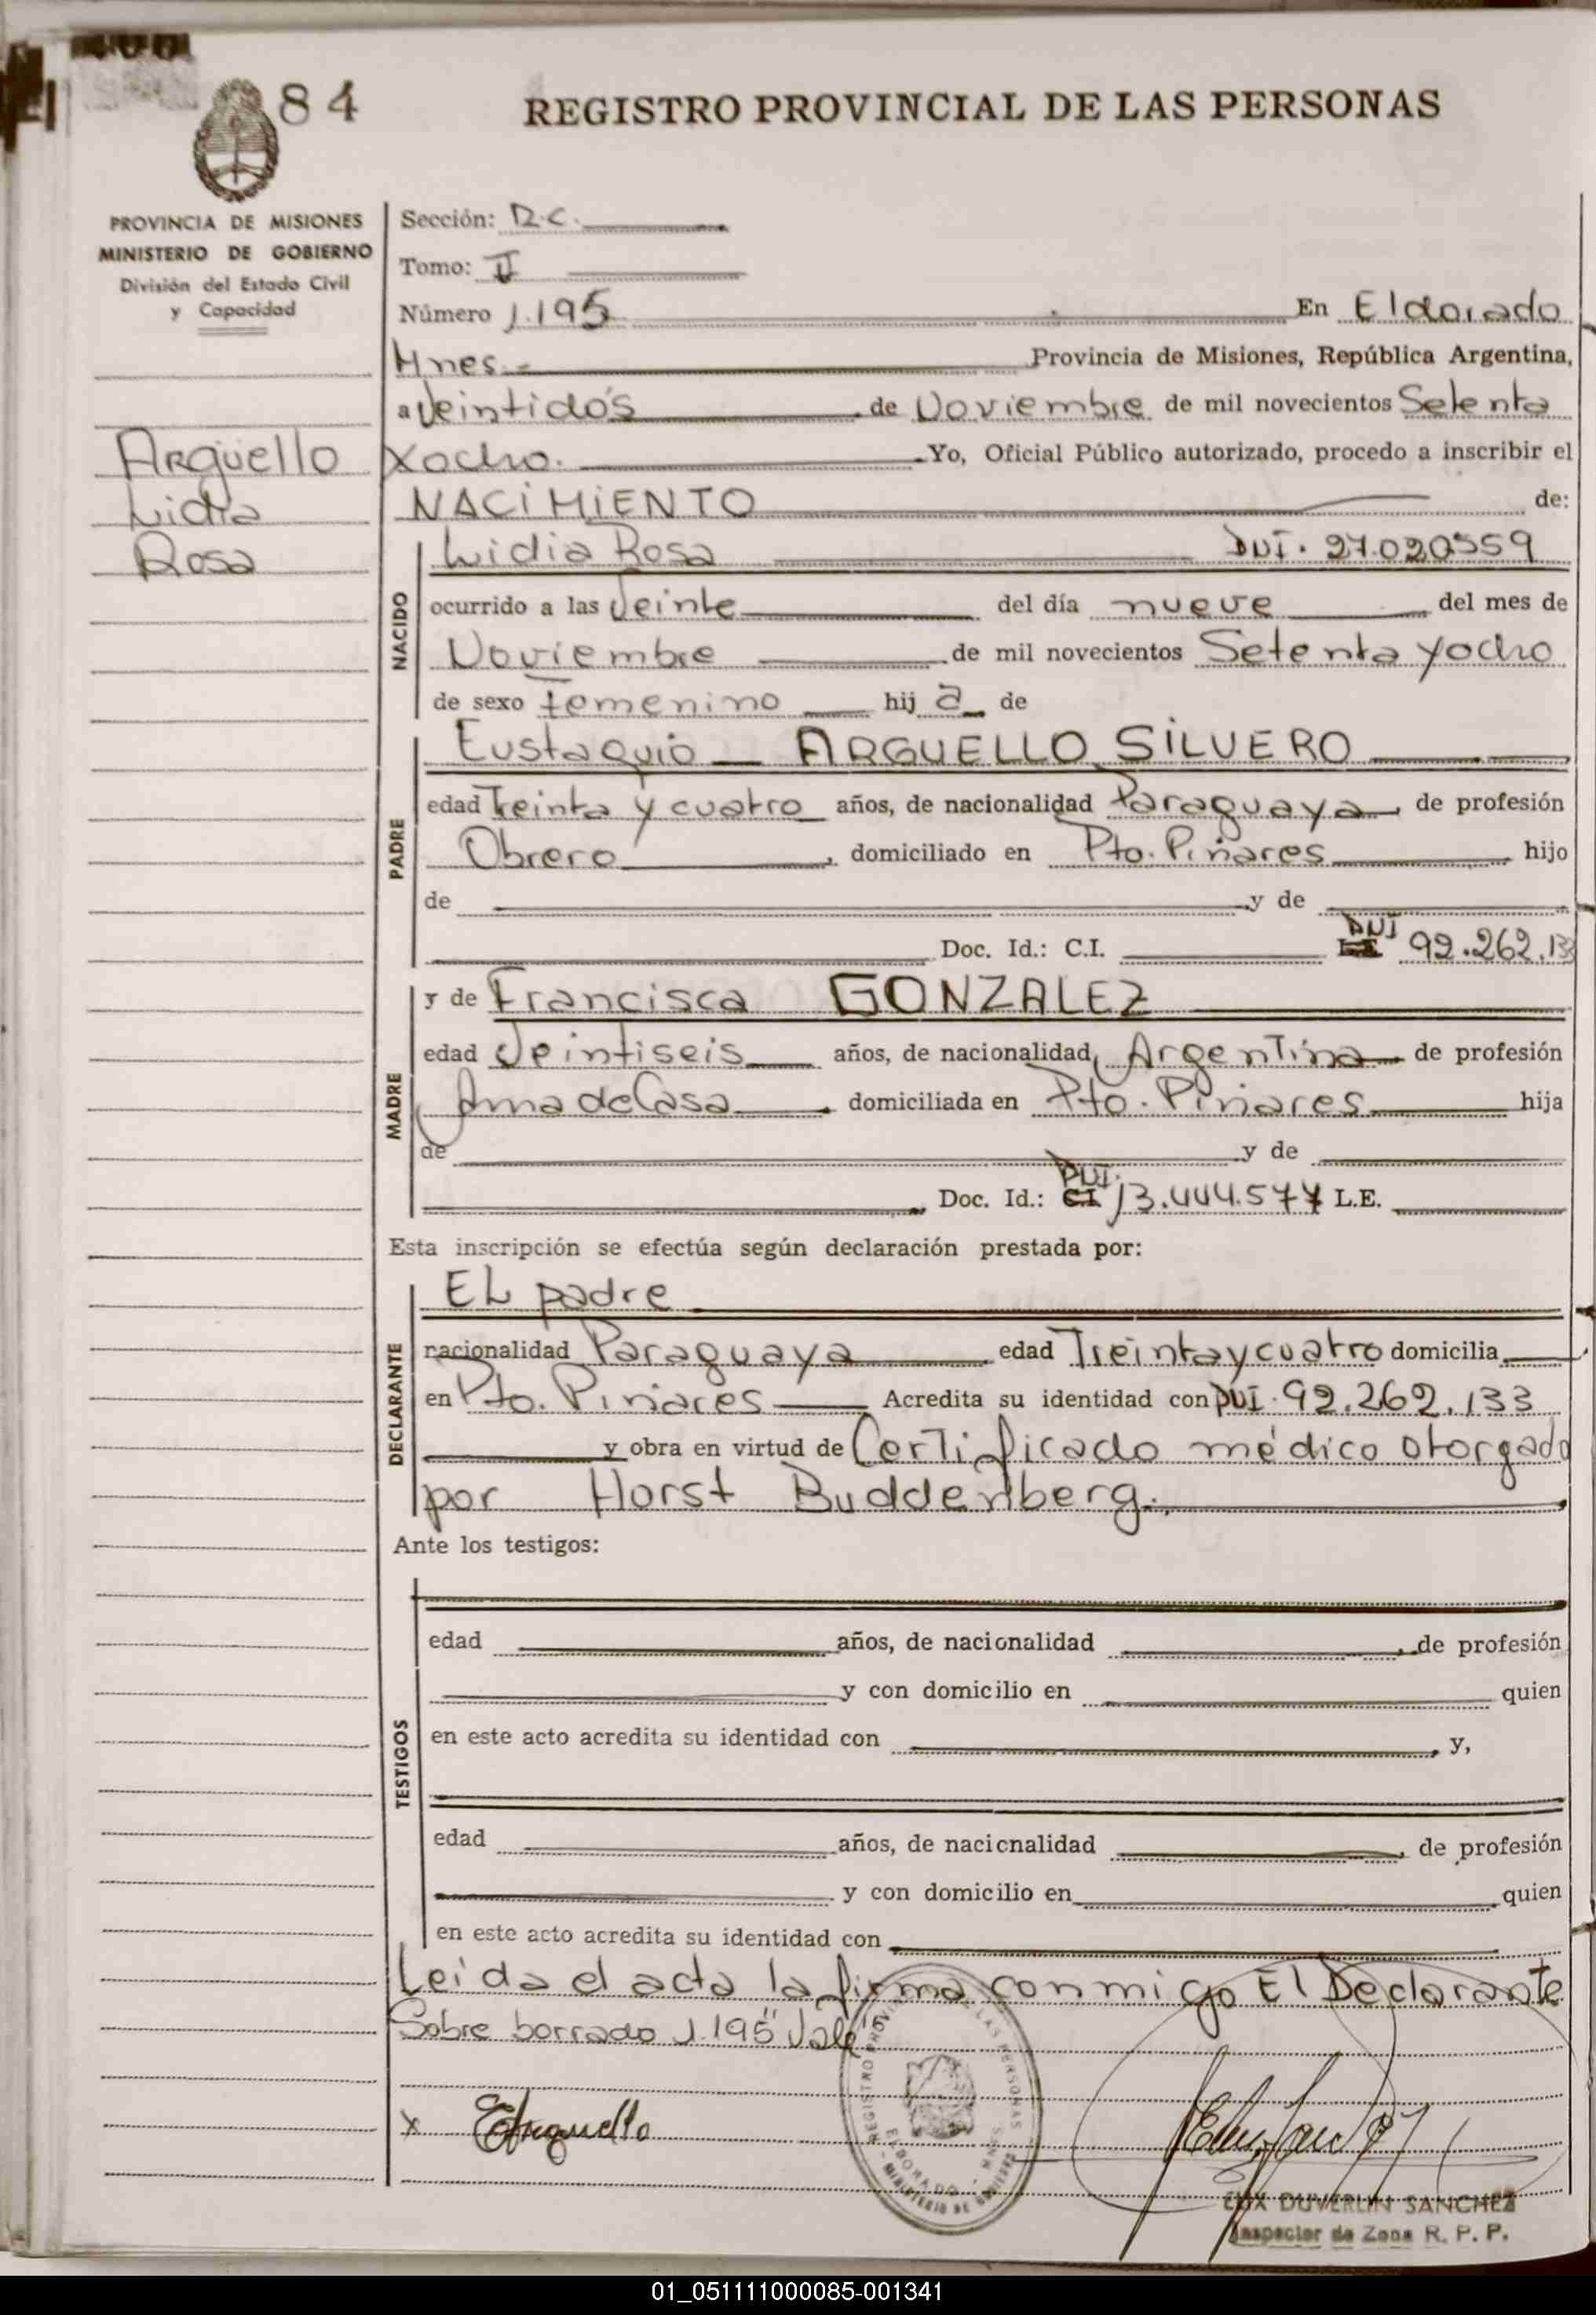 84
REGISTRO PROVINCIAL DE LAS PERSONAS
PROVINCIA DE MISIONES
MINISTERIO DE GOBIERNO
División del Estado Civil
y Capacidad
Argüello
Lidia
Rosa
Sección: D.C.
Tomo: II
Número 1.195 En Eldorado
Mnes. Provincia de Misiones, República Argentina,
a Veintidós de Noviembre de mil novecientos Setenta
Yocho. Yo, Oficial Público autorizado, procedo a inscribir el
NACIMIENTO de:
NACIDO
Lidia Rosa DNI. 27.020559
ocurrido a las Veinte del día nueve del mes de
Noviembre de mil novecientos Setenta Yocho
de sexo femenino hij a de
PADRE
Eustaquio ARGUELLO SILVERO
edad Treinta y cuatro años, de nacionalidad Paraguaya, de profesión
Obrero, domiciliado en Pto. Piñares hijo
de y de
Doc. Id.: C.I. DNI 92.262.133
MADRE
y de Francisca GONZALEZ
edad Veintiseis años, de nacionalidad Argentina de profesión
Ama de Casa domiciliada en Pto. Piñares hija
de y de
Doc. Id.: C.I DNI. 13.444.577 L.E.
Esta inscripción se efectúa según declaración prestada por:
DECLARANTE
EL padre
nacionalidad Paraguaya edad Treintaycuatro domicilia
en Pto. Piñares Acredita su identidad con DNI. 92.262.133
y obra en virtud de Certificado médico otorgado
por Horst Buddenberg.
Ante los testigos:
TESTIGOS
edad años, de nacionalidad, de profesión
y con domicilio en quien
en este acto acredita su identidad con, y,
edad años, de nacionalidad, de profesión
y con domicilio en quien
en este acto acredita su identidad con
Leida el acta la firma conmigo El Declarante
Sobre borrado 1.195" Vale"
x EArguello
REGISTRO PROVINCIAL DE LAS PERSONAS
ELDORADO - MNES.
MINISTERIO DE GOBIERNO
DUVERLIN SANCHEZ
Inspector de Zona R. P. P.
01_051111000085-001341